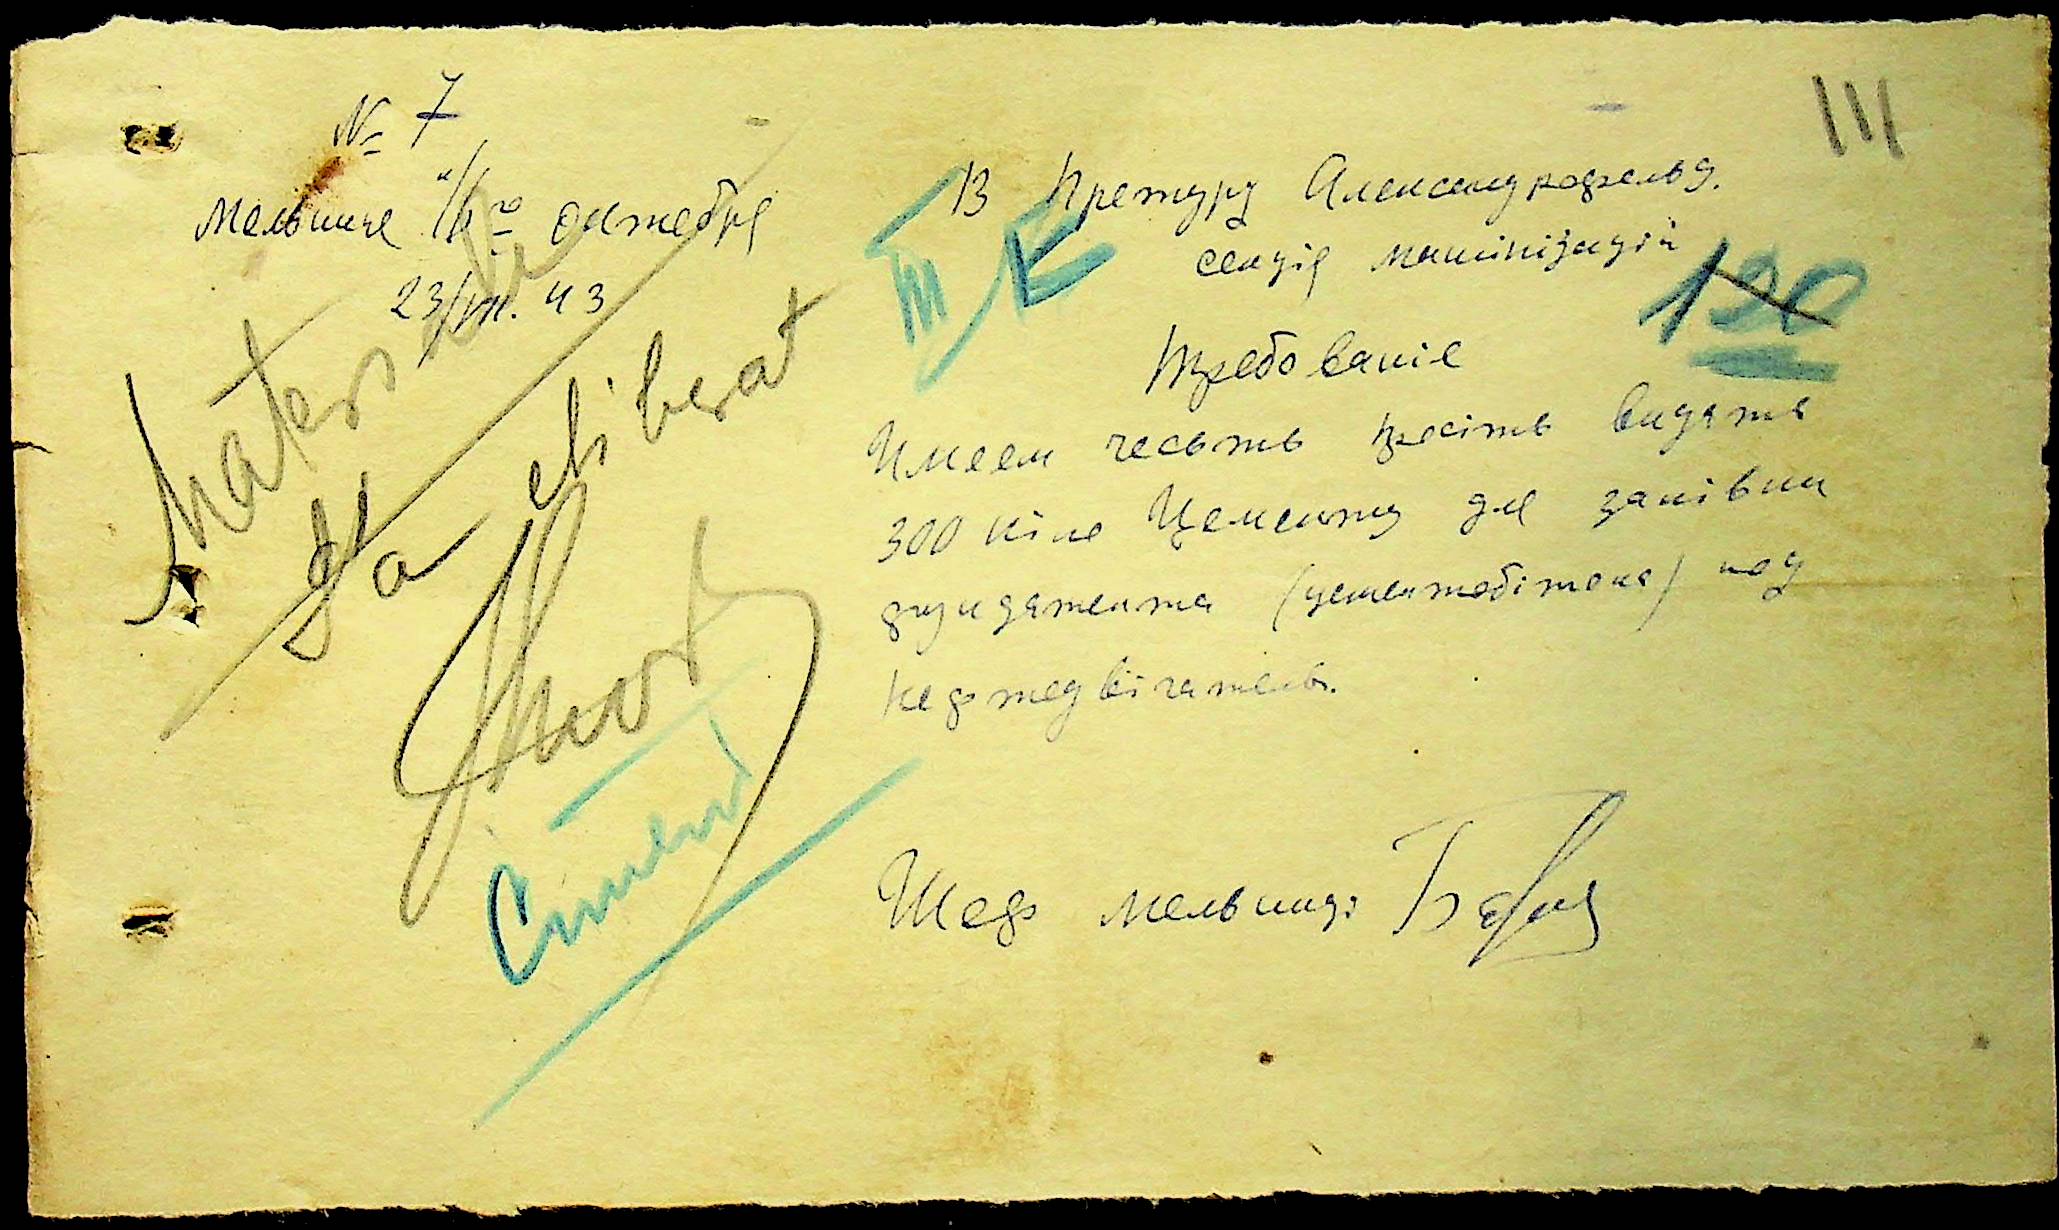 № 7
Мельниця "16го октября
23/VIII. 43
III
В Претуру Александрофельд.
секція машінізацій
120
Требованіе
Имеем чесьть просіть видать
300 кіло Цементу для залівки
фундамента (цементобітона) под
нефтедвігатель.
Шеф мельниці
Materialu
s'a eliberat